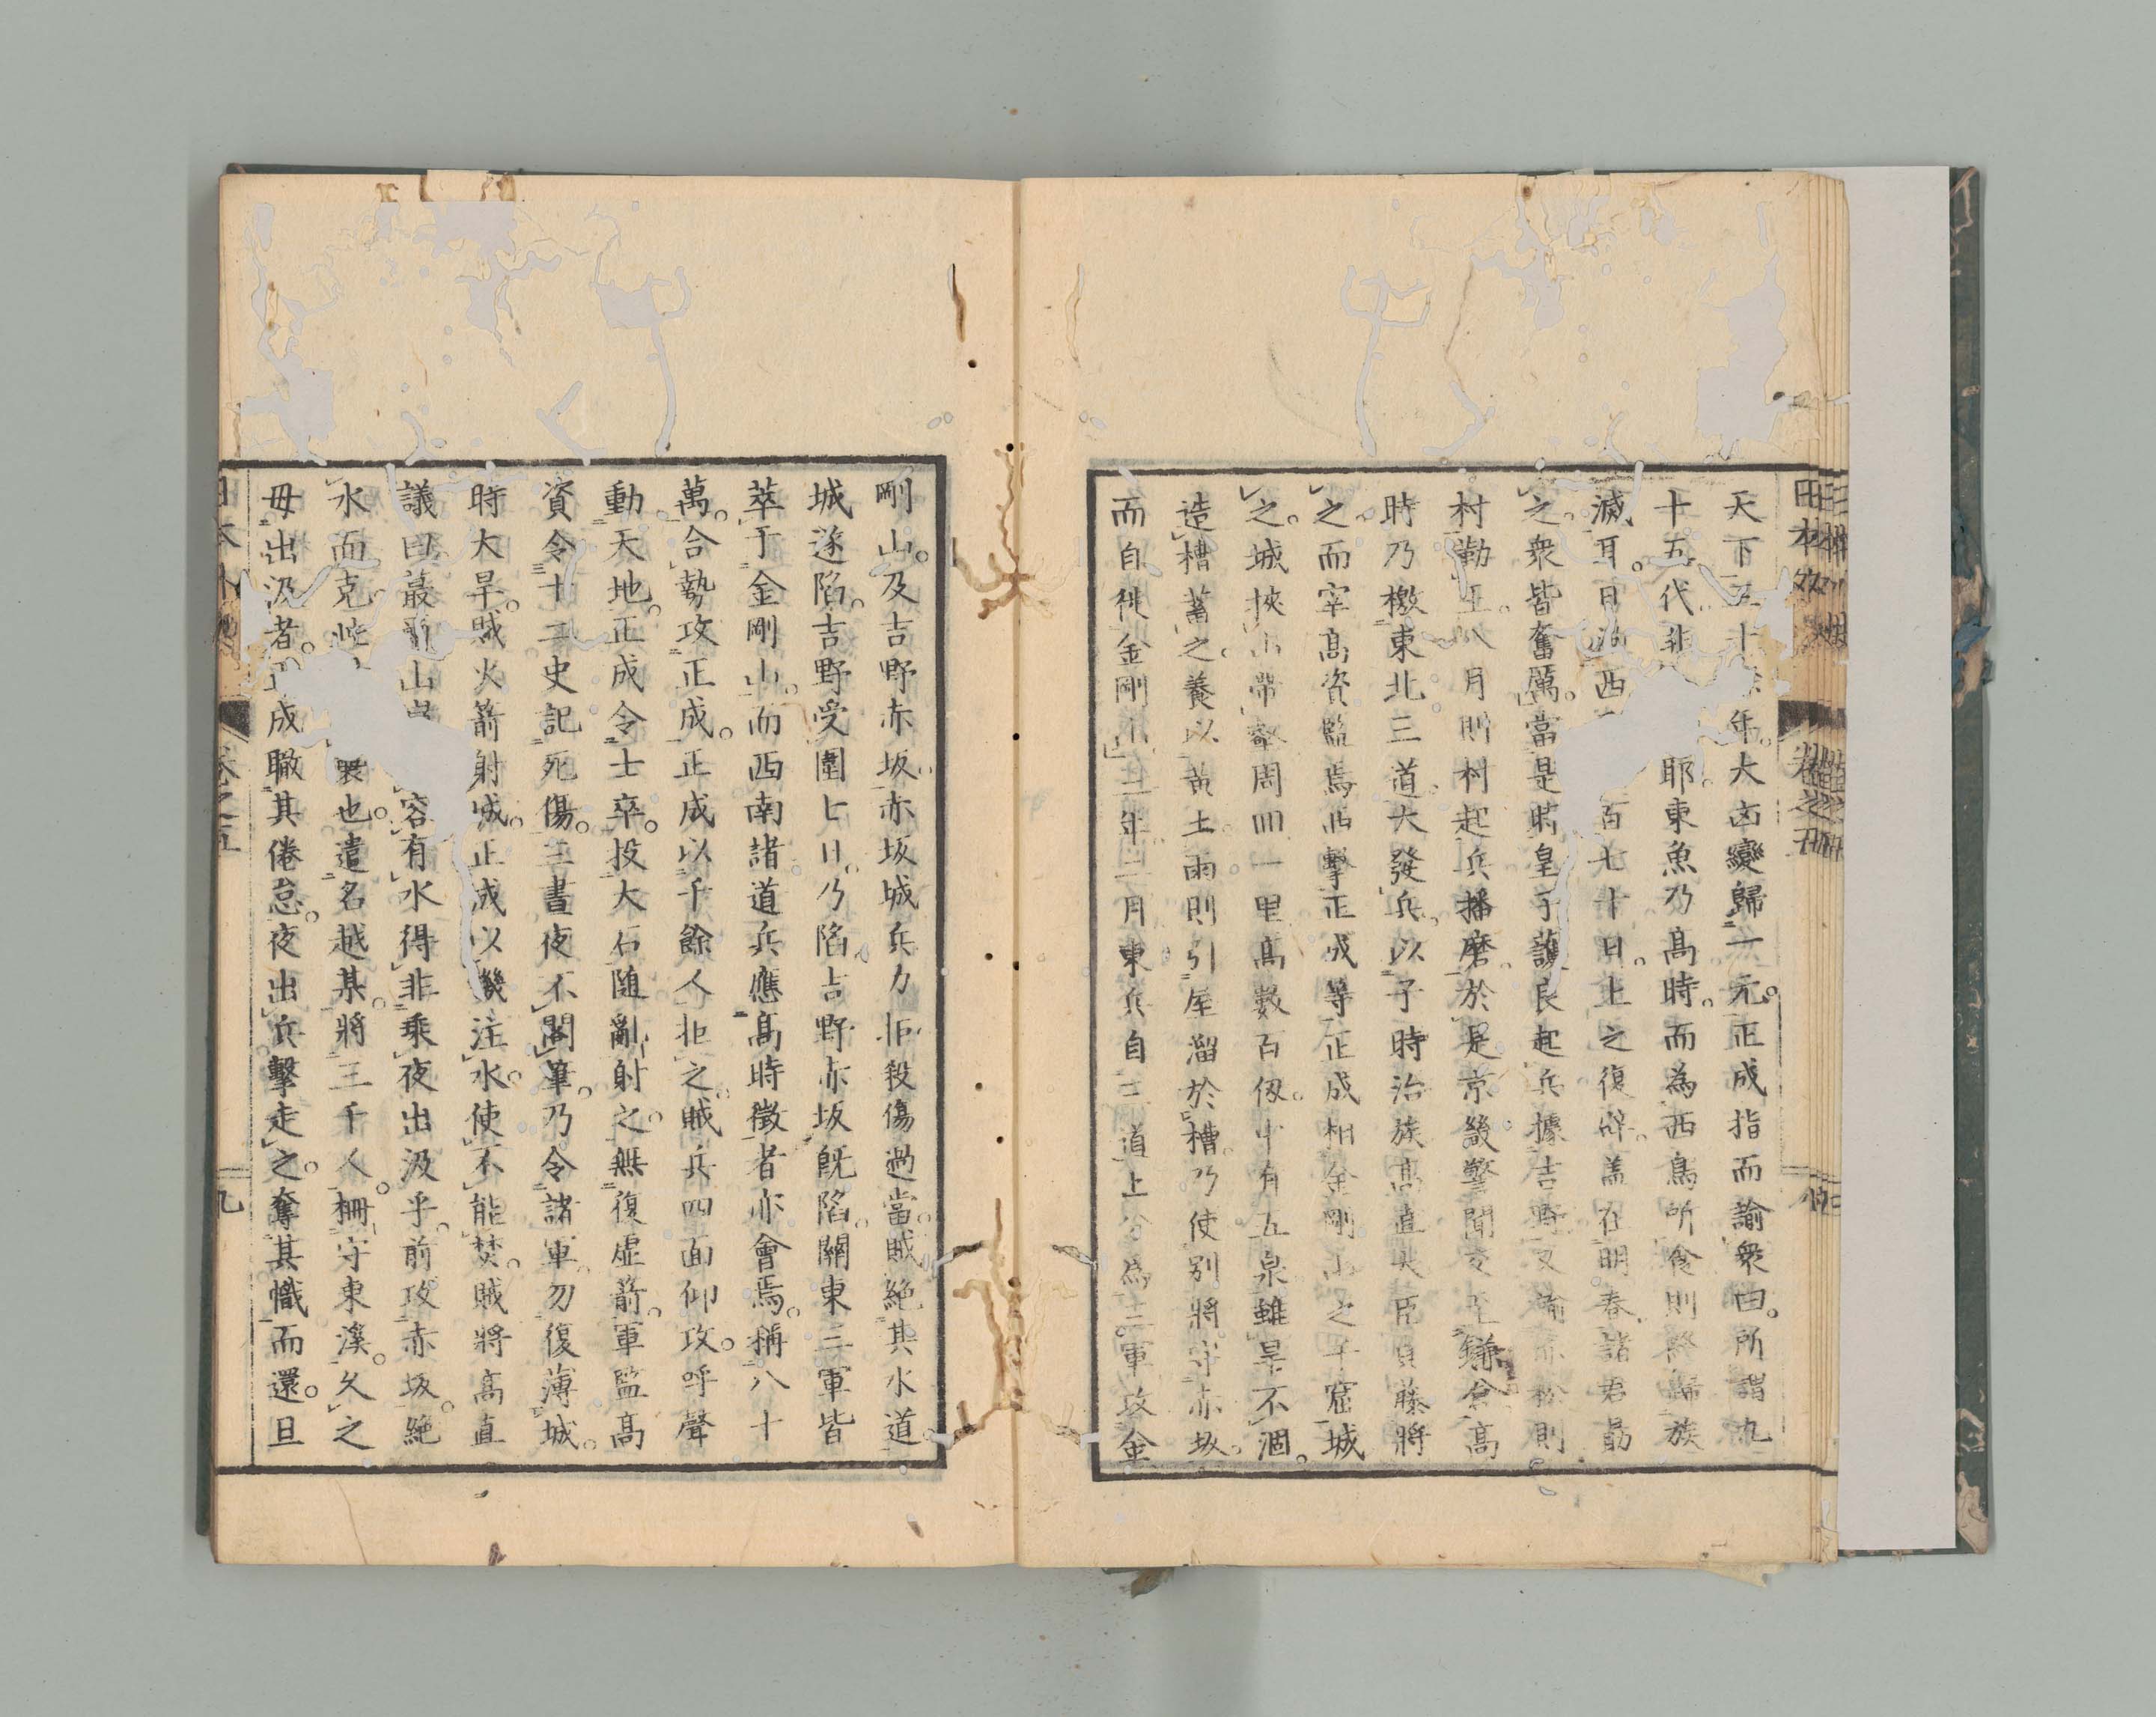 天下五十餘年。大凶變歸一元。正成指而諭衆曰。所謂九
十五代。非 耶。東魚乃高時。而為西鳥所食則終歸族
滅耳。日沒西 百七十日。上之復辟。盖在明春。諸君勗
之。衆皆奮厲。當是時皇子護良起兵據吉野又諭赤松則
村勤王。八月則村起兵播磨。於是京畿警聞交至鎌倉高
時乃檄東北三道。大發兵。以子時治族高直大臣貞藤將
之。而宰高資監焉。西擊正成等。正成相金剛山之千窟城
之。城挾山帶谿周四一里。高數百仭。中有五泉雖旱不涸。
造槽蓄之。養以黄土。雨則引屋溜於槽。乃使別將守赤坂。
而自徙金剛山。三年二月東兵自三道上分為三軍攻金
剛山。及吉野赤坂。赤坂城兵力拒殺傷過當。賊絶其水道。
城遂陷。吉野受圍七日。乃陷。吉野赤坂既陷。關東三軍皆
萃于金剛山。而西南諸道兵應高時徵者亦會焉。稱八十
萬。合勢攻正成。正成以千餘人拒之。賊兵四面仰攻。呼聲
動天地。正成令士卒。投大石随亂射之。無復虛箭。軍監高
資令十二史記死傷。三晝夜不閣筆。乃令諸軍勿復薄城。
時大旱。賊火箭射城。正成以機注水。使不能焚。賊將高直
議曰蕞爾山 容有水得非乘夜出汲乎。前攻赤坂。絶
水而克。 也。遣名越某。將三千人。柵守東溪。久之
毋出汲者。正成瞰其倦怠。夜出兵擊走之。奪其幟而還。旦
日本外史 卷之五 九